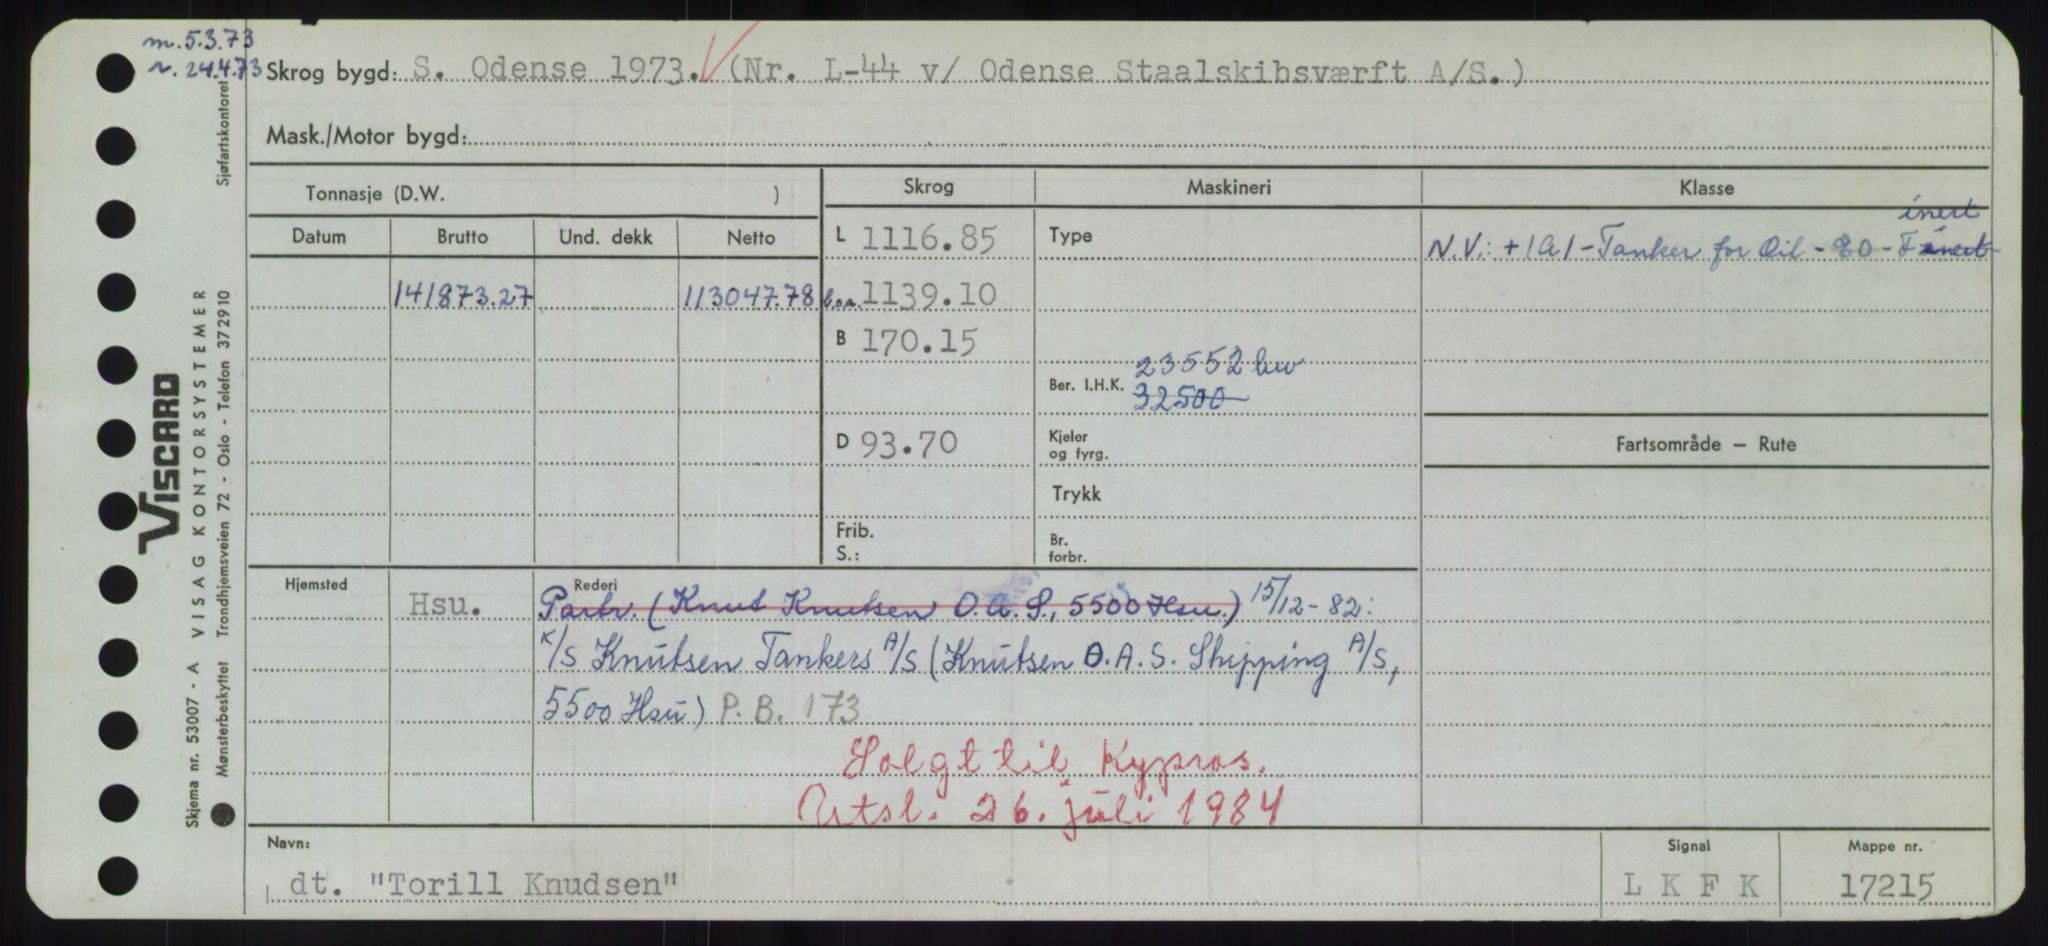 m. 5.3.73
r. 24.4.73
Skrog bygd: S. Odense 1973. (Nr. L-44 v/ Odense Staalskibsværft A/S.)
Mask./Motor bygd:
Tonnasje (D.W. )
Skrog
Maskineri
Klasse
Datum
Brutto
Und. dekk
Netto
L 1116.85
Type
inert
N.V.: +1A1 - Tanker for Oil - E0 - F inert
141873.27
113047.78
l.o.a. 1139.10
B 170.15
23552 kw
Ber. I.H.K.
32500
D 93.70
Kjeler
og fyrg.
Fartsområde — Rute
Trykk
Frib.
S.:
Br.
forbr.
Hjemsted
Hsu.
Rederi
Partr. (Knut Knutsen O.A.S., 5500 Hsu.) 15/12-82:
K/S Knutsen Tankers A/S (Knutsen O.A.S. Shipping A/S,
5500 Hsu) P.B. 173
Solgt til Kypros.
Utsl. 26. juli 1984
Navn:
dt. "Torill Knudsen"
Signal
L K F K
Mappe nr.
17215
VISCARD
Skjema nr. 53007 - A VISAG KONTORSYSTEMER
Mønsterbeskyttet Trondhjemsveien 72 - Oslo - Telefon 372910
Sjøfartskontoret